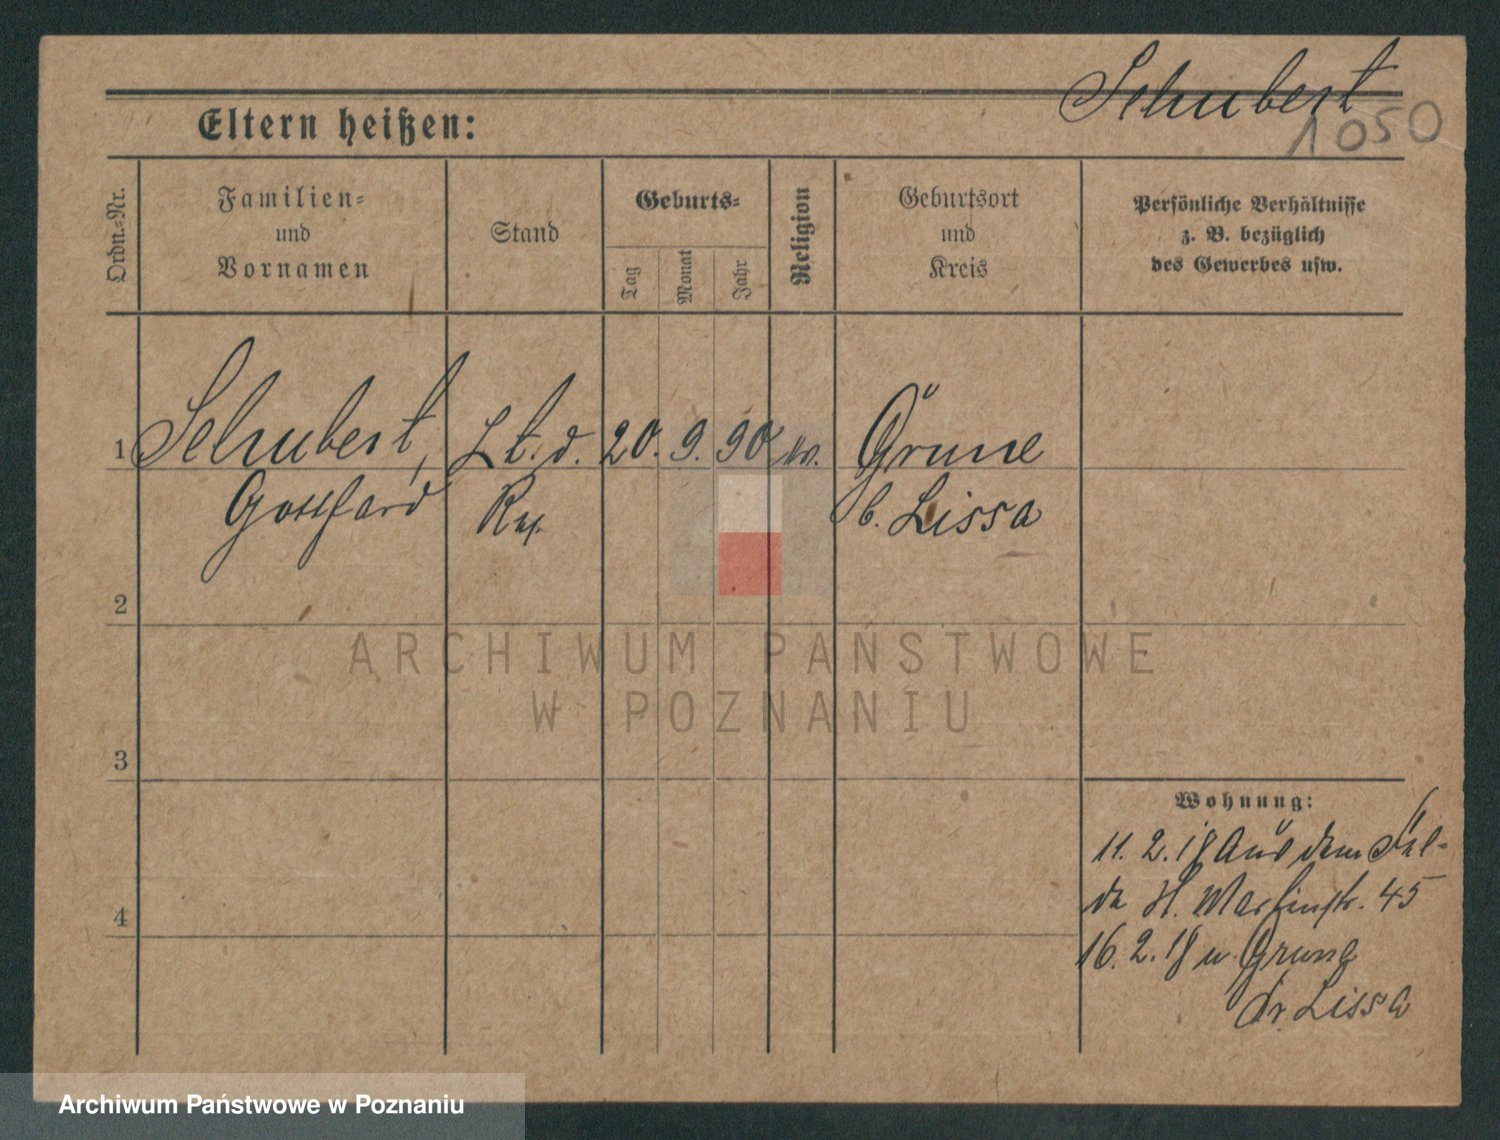 Schubert
1050
Eltern heißen:
Ordn.=Nr.
Familien=
und
Vornamen
Stand
Geburts=
Tag
Monat
Jahr
Religion
Geburtsort
und
Kreis
Persönliche Verhältnisse
z. B. bezüglich
des Gewerbes usw.
1 Schubert, Lt. d. 20. 9. 90 Grune
Gotthard b. Lissa
2
ARCHIWUM PAŃSTWOWE
W POZNANIU
3
Wohnung:
11. 2. 18 Aus dem Fel-
de Martinstr. 45
4
16. 2. 18 n. Grune
Kr. Lissa
Archiwum Państwowe w Poznaniu